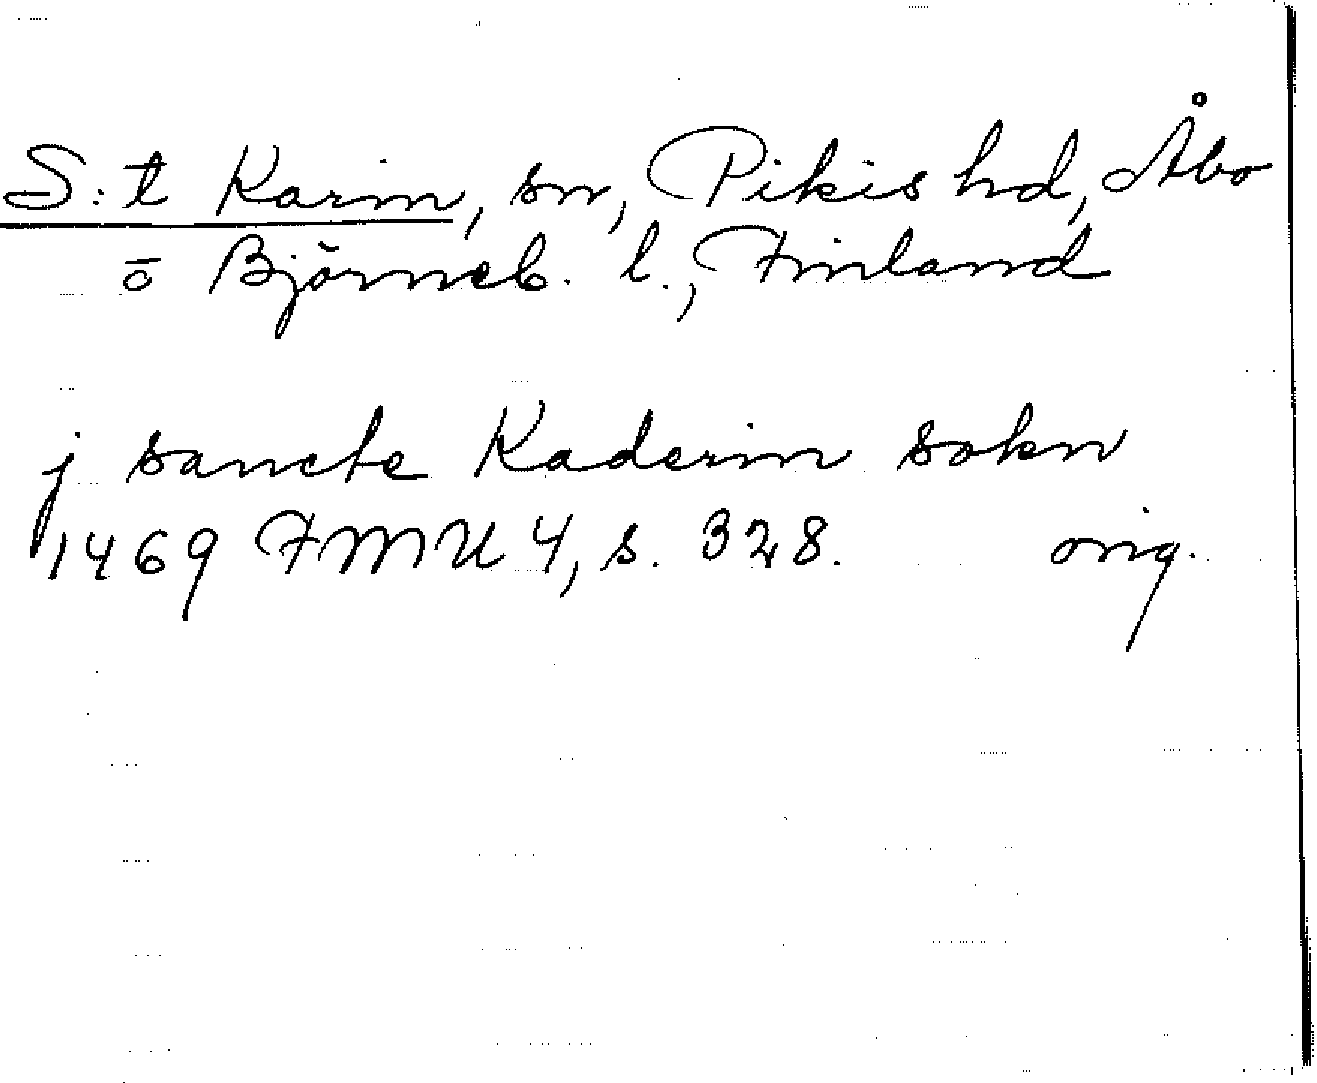 S:t Karin, sn, Pikis hd, Åbo
o Björneb. l., Finland
j sancte Kaderin sokn
1469 FMU 4, s. 328. orig.